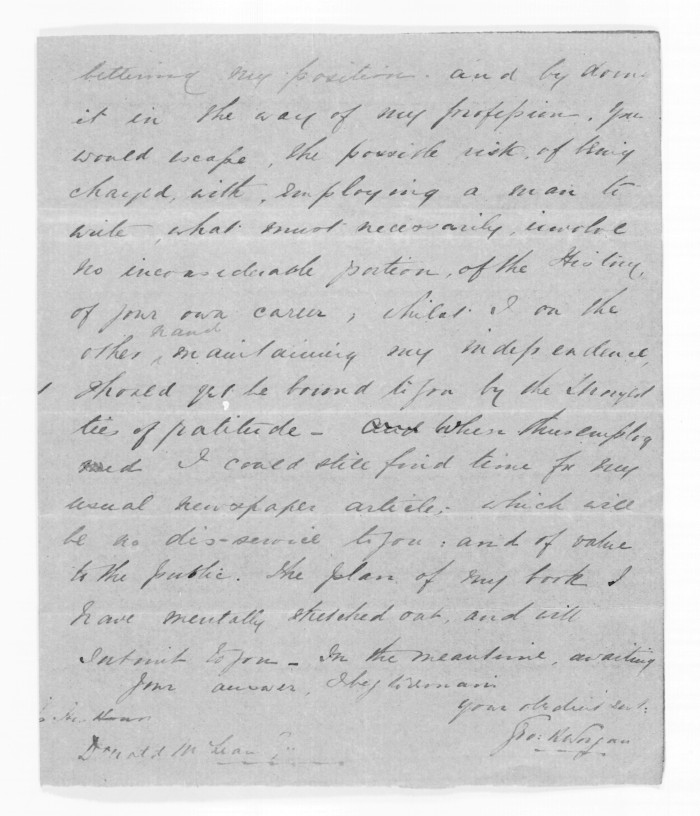 bettering my position. and by doing
it in the way of my profession, you
would escape, the possible risk, of being
charged, with, employing a man to
write, what must necessarily, involve
no inconsiderable portion, of the History,
of your own career, whilst I on the
other hand, maintaining my independence,
should yet be bound to you by the strongest
ties of gratitude - and When thus employ
ed I could still find time for my
usual newspaper article; which will
be no dis-service to you: and of value
to the public. The plan of my book I
have mentally sketched out, and will
submit to you - In the meantime, awaiting
Your answer, I beg to remain
Your obedient Servt:
To The Honr
Donald McLean